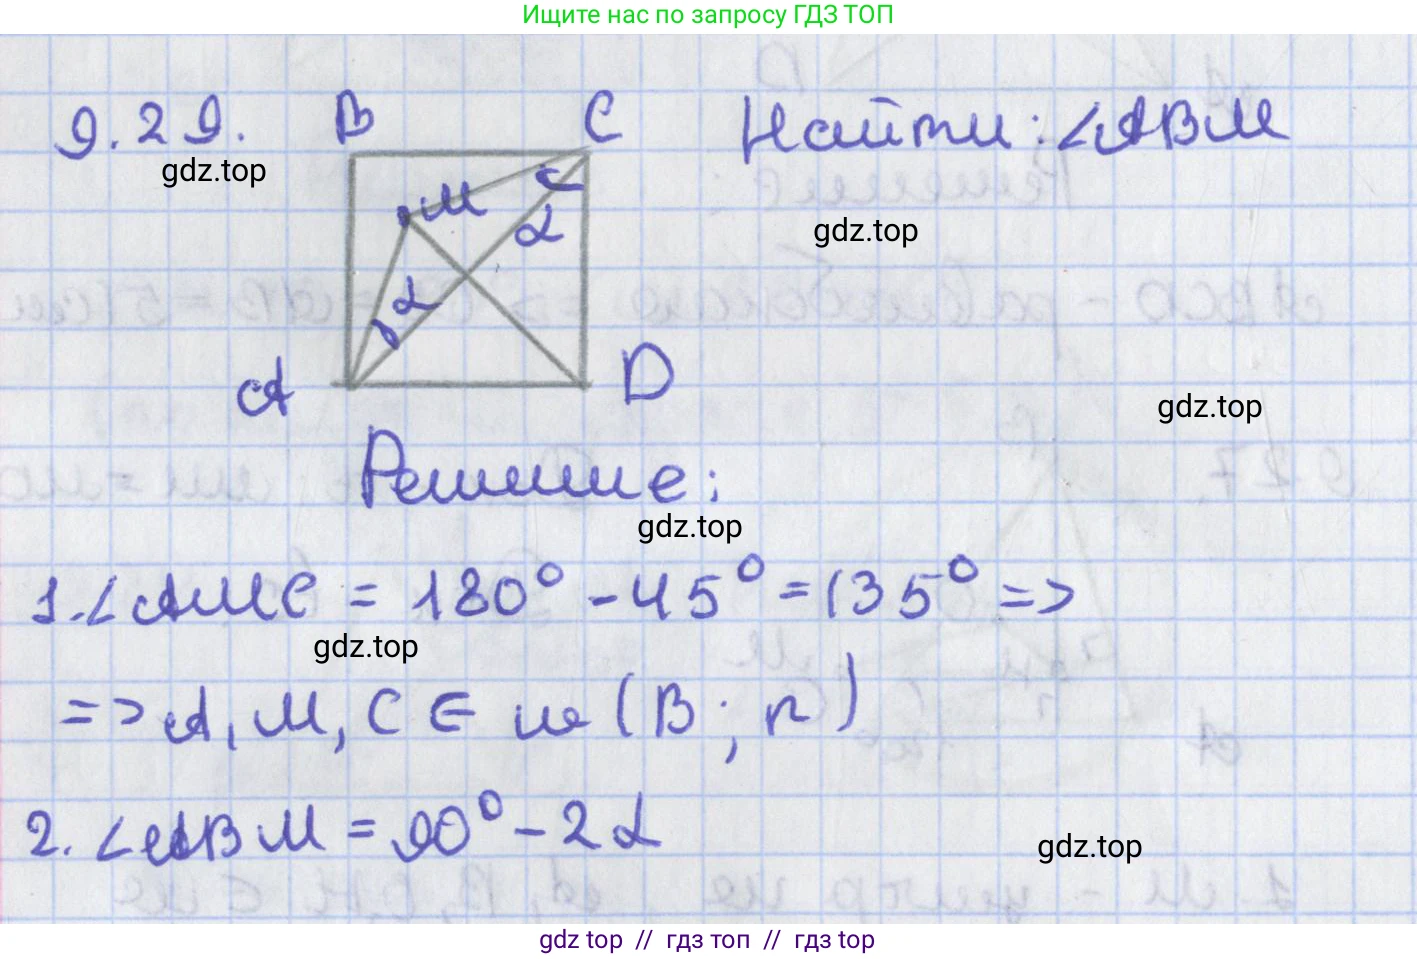 Ищите нас по запросу ГДЗ ТОП
9.29.
B
C
Найти: ∠ABM
gdz.top
M
α
gdz.top
α
A
D
gdz.top
Решение:
gdz.top
1. ∠AMC = 180° - 45° = 135° =>
gdz.top
=> A, M, C ∈ ω (B; r)
2. ∠ABM = 90° - 2α
gdz.top
gdz top // гдз топ // гдз top